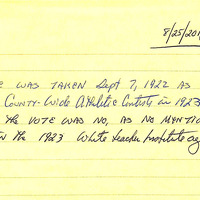 8/25/201
E WAS TAKEN Sept 7, 1922 AS
COUNTY-Wide Athletic Contests in 1923
THE VOTE WAS NO, AS NO MENTION
THE 1923 White teacher Institute ag